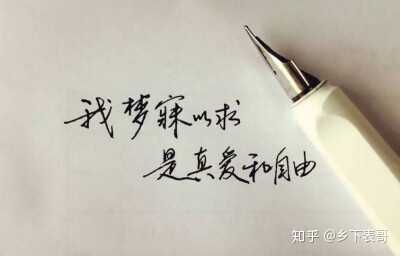 我梦寐以求
是真爱和自由
知乎 @乡下表哥